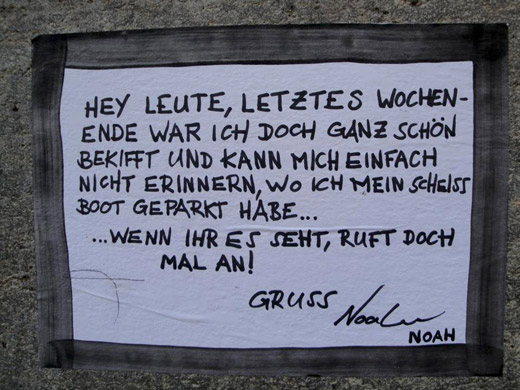 HEY LEUTE, LETZTES WOCHEN-
ENDE WAR ICH DOCH GANZ SCHÖN
BEKIFFT UND KANN MICH EINFACH
NICHT ERINNERN, WO ICH MEIN SCHEISS
BOOT GEPARKT HABE...
...WENN IHR ES SEHT, RUFT DOCH
MAL AN!
GRUSS Noah
NOAH